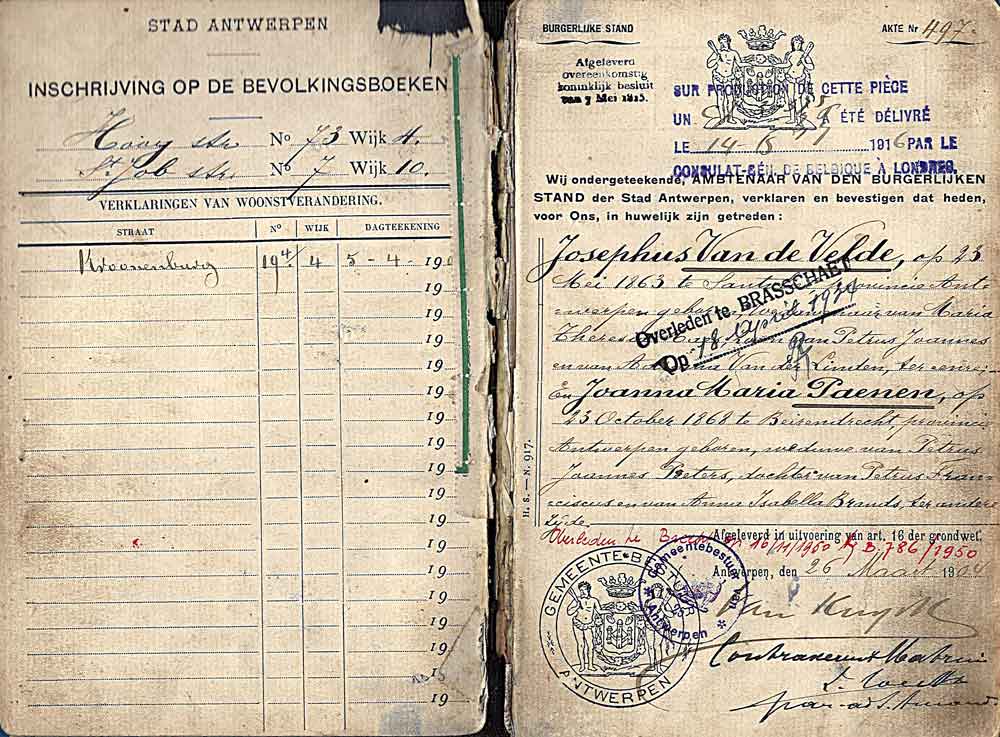 STAD ANTWERPEN
INSCHRIJVING OP DE BEVOLKINGSBOEKEN
Hoog str No 73 Wijk 4.
St. Job str No 7 Wijk 10.
VERKLARINGEN VAN WOONSTVERANDERING.
STRAAT No WIJK DAGTEEKENING
Kroonenburg 194 4 5-4-190
19
19
19
19
19
19
19
19
19
19
19
19
19
19
19
19
19
BURGERLIJKE STAND AKTE Nr 497.
Afgeleverd
overeenkomstig
koninklijk besluit
van 7 Mei 1815.
SUR PRODUCTION DE CETTE PIÈCE
UN A ÉTÉ DÉLIVRÉ
LE 14 1916 PAR LE
CONSULAT-GÉN. DE BELGIQUE À LONDRES.
Wij ondergeteekende, AMBTENAAR VAN DEN BURGERLIJKEN
STAND der Stad Antwerpen, verklaren en bevestigen dat heden,
voor Ons, in huwelijk zijn getreden :
Josephus Van de Velde, op 23
Mei 1863 te provincie Ant-
werpen geboren, weduwnaar van Maria
Theresia zoon van Petrus Joannes
en van Van der Linden, ter eenre,
Overleden te BRASSCHAET
Op 18 April 1924
En Joanna Maria Paenen, op
23 October 1868 te Beirendrecht, provincie
Antwerpen geboren, weduwe van Petrus
Joannes Peters, dochter van Petrus Fran-
ciscus en van Anna Isabella Brands, ter andere
zijde.
H. S. — N. 917.
Afgeleverd in uitvoering van art. 16 der grondwet.
Overleden te op 10/11/1950 B. 786/1950
Antwerpen, den 26 Maart 1904
GEMEENTE-BESTUUR
ANTWERPEN
Gemeentebestuur van
Antwerpen